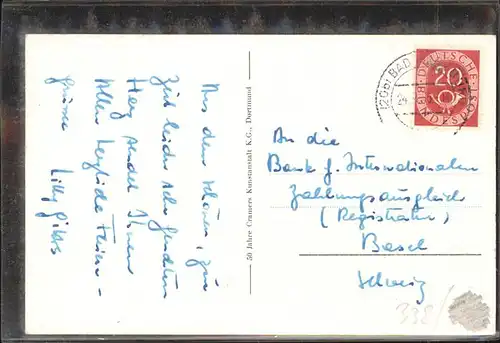 Aus dem schönen, zur
Zeit leider sehr
Harz sendet Ihnen
Allen herzliche Ferien-
grüsse
Lilly
50 Jahre Cramers Kunstanstalt K.G., Dortmund
(20b) BAD
DEUTSCHE POST
20
BUNDESPOST
An die
Bank f. Internationalen
Zahlungsausgleich
(Registratur)
Basel
Schweiz
338/